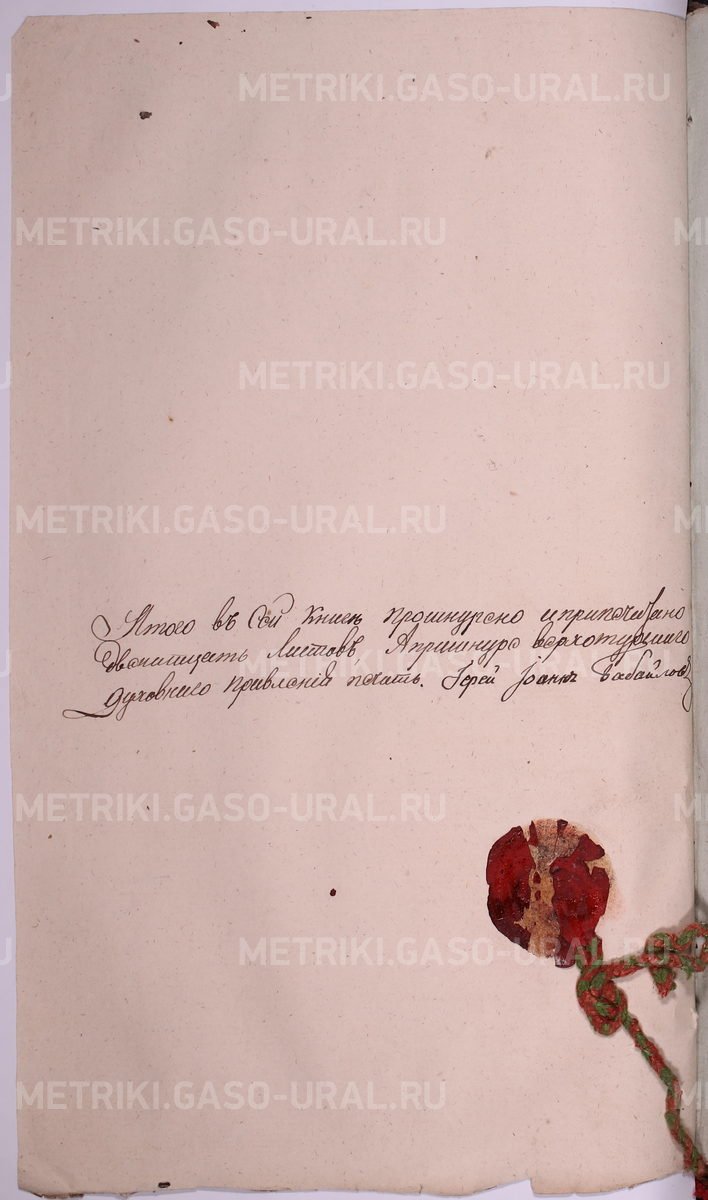 METRIKI.GASO-URAL.RU
METRIKI.GASO-URAL.RU
METRIKI.GASO-URAL.RU
METRIKI.GASO-URAL.RU
Итого въ сей книгѣ прошнурено и припечатано
листовъ, верхотурскаго
духовнаго правленія печать. Іерей Іоаннъ
METRIKI.GASO-URAL.RU
METRIKI.GASO-URAL.RU
METRIKI.GASO-URAL.RU
METRIKI.GASO-URAL.RU